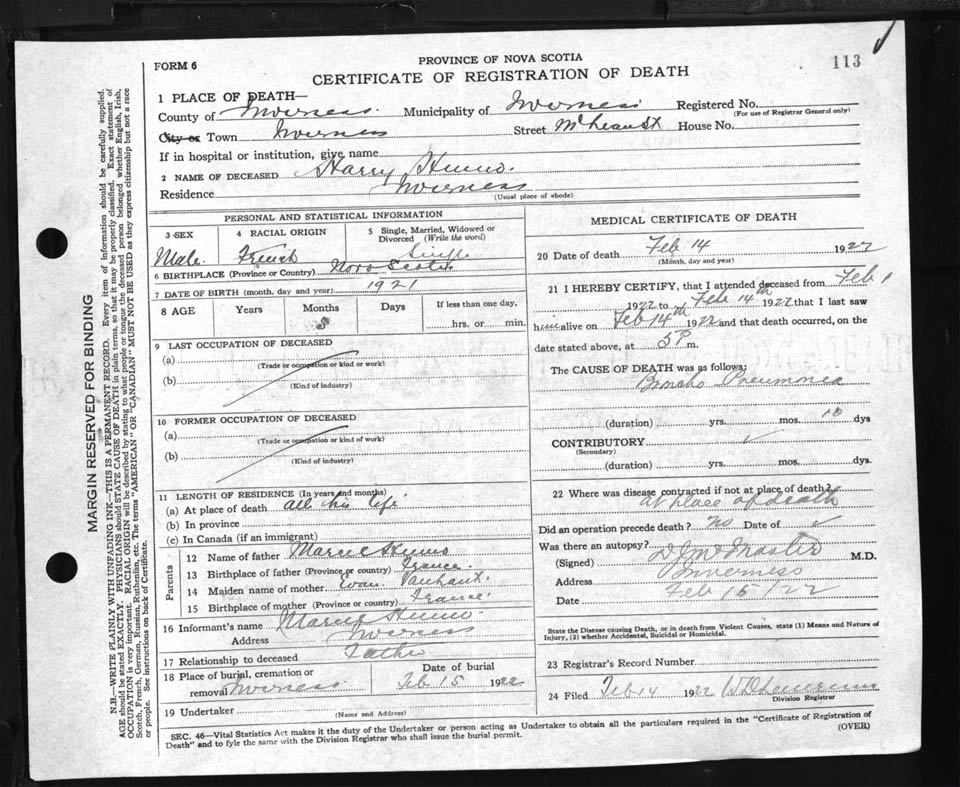 113
FORM 6
PROVINCE OF NOVA SCOTIA
CERTIFICATE OF REGISTRATION OF DEATH
1 PLACE OF DEATH—
County of Inverness. Municipality of Inverness Registered No.
(For use of Registrar General only)
City or Town Inverness Street McLean St House No.
If in hospital or institution, give name
2 NAME OF DECEASED Harry
Residence Inverness
(Usual place of abode)
PERSONAL AND STATISTICAL INFORMATION
3 SEX 4 RACIAL ORIGIN 5 Single, Married, Widowed or Divorced (Write the word)
Male. French Single
6 BIRTHPLACE (Province or Country) Nova Scotia
7 DATE OF BIRTH (month, day and year) 1921
8 AGE Years Months Days If less than one day,
hrs. or min.
9 LAST OCCUPATION OF DECEASED
(a)
(Trade or occupation or kind of work)
(b)
(Kind of industry)
10 FORMER OCCUPATION OF DECEASED
(a)
(Trade or occupation or kind of work)
(b)
(Kind of industry)
11 LENGTH OF RESIDENCE (In years and months)
(a) At place of death all his life
(b) In province
(c) In Canada (if an immigrant)
Parents
12 Name of father Marcel
13 Birthplace of father (Province or country) France.
14 Maiden name of mother
15 Birthplace of mother (Province or country) France
16 Informant's name Marcel
Address Inverness
17 Relationship to deceased Father
18 Place of burial, cremation or removal Inverness Date of burial Feb 15 1922
19 Undertaker
(Name and Address)
MEDICAL CERTIFICATE OF DEATH
20 Date of death Feb 14 1922
(Month, day and year)
21 I HEREBY CERTIFY, that I attended deceased from Feb 1
1922 to Feb 14th 1922 that I last saw
him alive on Feb 14th 1922 and that death occurred, on the
date stated above, at 5 P m.
The CAUSE OF DEATH was as follows:
Broncho Pneumonia
(duration) yrs. mos. 10 dys
CONTRIBUTORY
(Secondary)
(duration) yrs. mos. dys.
22 Where was disease contracted if not at place of death?
at place of death
Did an operation precede death? No Date of
Was there an autopsy?
(Signed) McMaster M.D.
Address Inverness
Date Feb 15/22
State the Disease causing Death, or in death from Violent Causes, state (1) Means and Nature of Injury, (2) whether Accidental, Suicidal or Homicidal.
23 Registrar's Record Number
24 Filed Feb 14 1922
Division Registrar
SEC. 46—Vital Statistics Act makes it the duty of the Undertaker or person acting as Undertaker to obtain all the particulars required in the "Certificate of Registration of
Death" and to fyle the same with the Division Registrar who shall issue the burial permit.
(OVER)
MARGIN RESERVED FOR BINDING
N.B.—WRITE PLAINLY WITH UNFADING INK—THIS IS A PERMANENT RECORD. Every item of information should be carefully supplied.
AGE should be stated EXACTLY. PHYSICIANS should STATE CAUSE OF DEATH in plain terms, so that it may be properly classified. Exact statement of
OCCUPATION is very important. RACIAL ORIGIN will be described by stating to what people or tongue the deceased person belonged whether English, Irish,
Scotch, French, German, Russian, Ruthenian, etc. The terms "AMERICAN" OR "CANADIAN" MUST NOT BE USED as they express citizenship but not a race
or people. See instructions on back of Certificate.